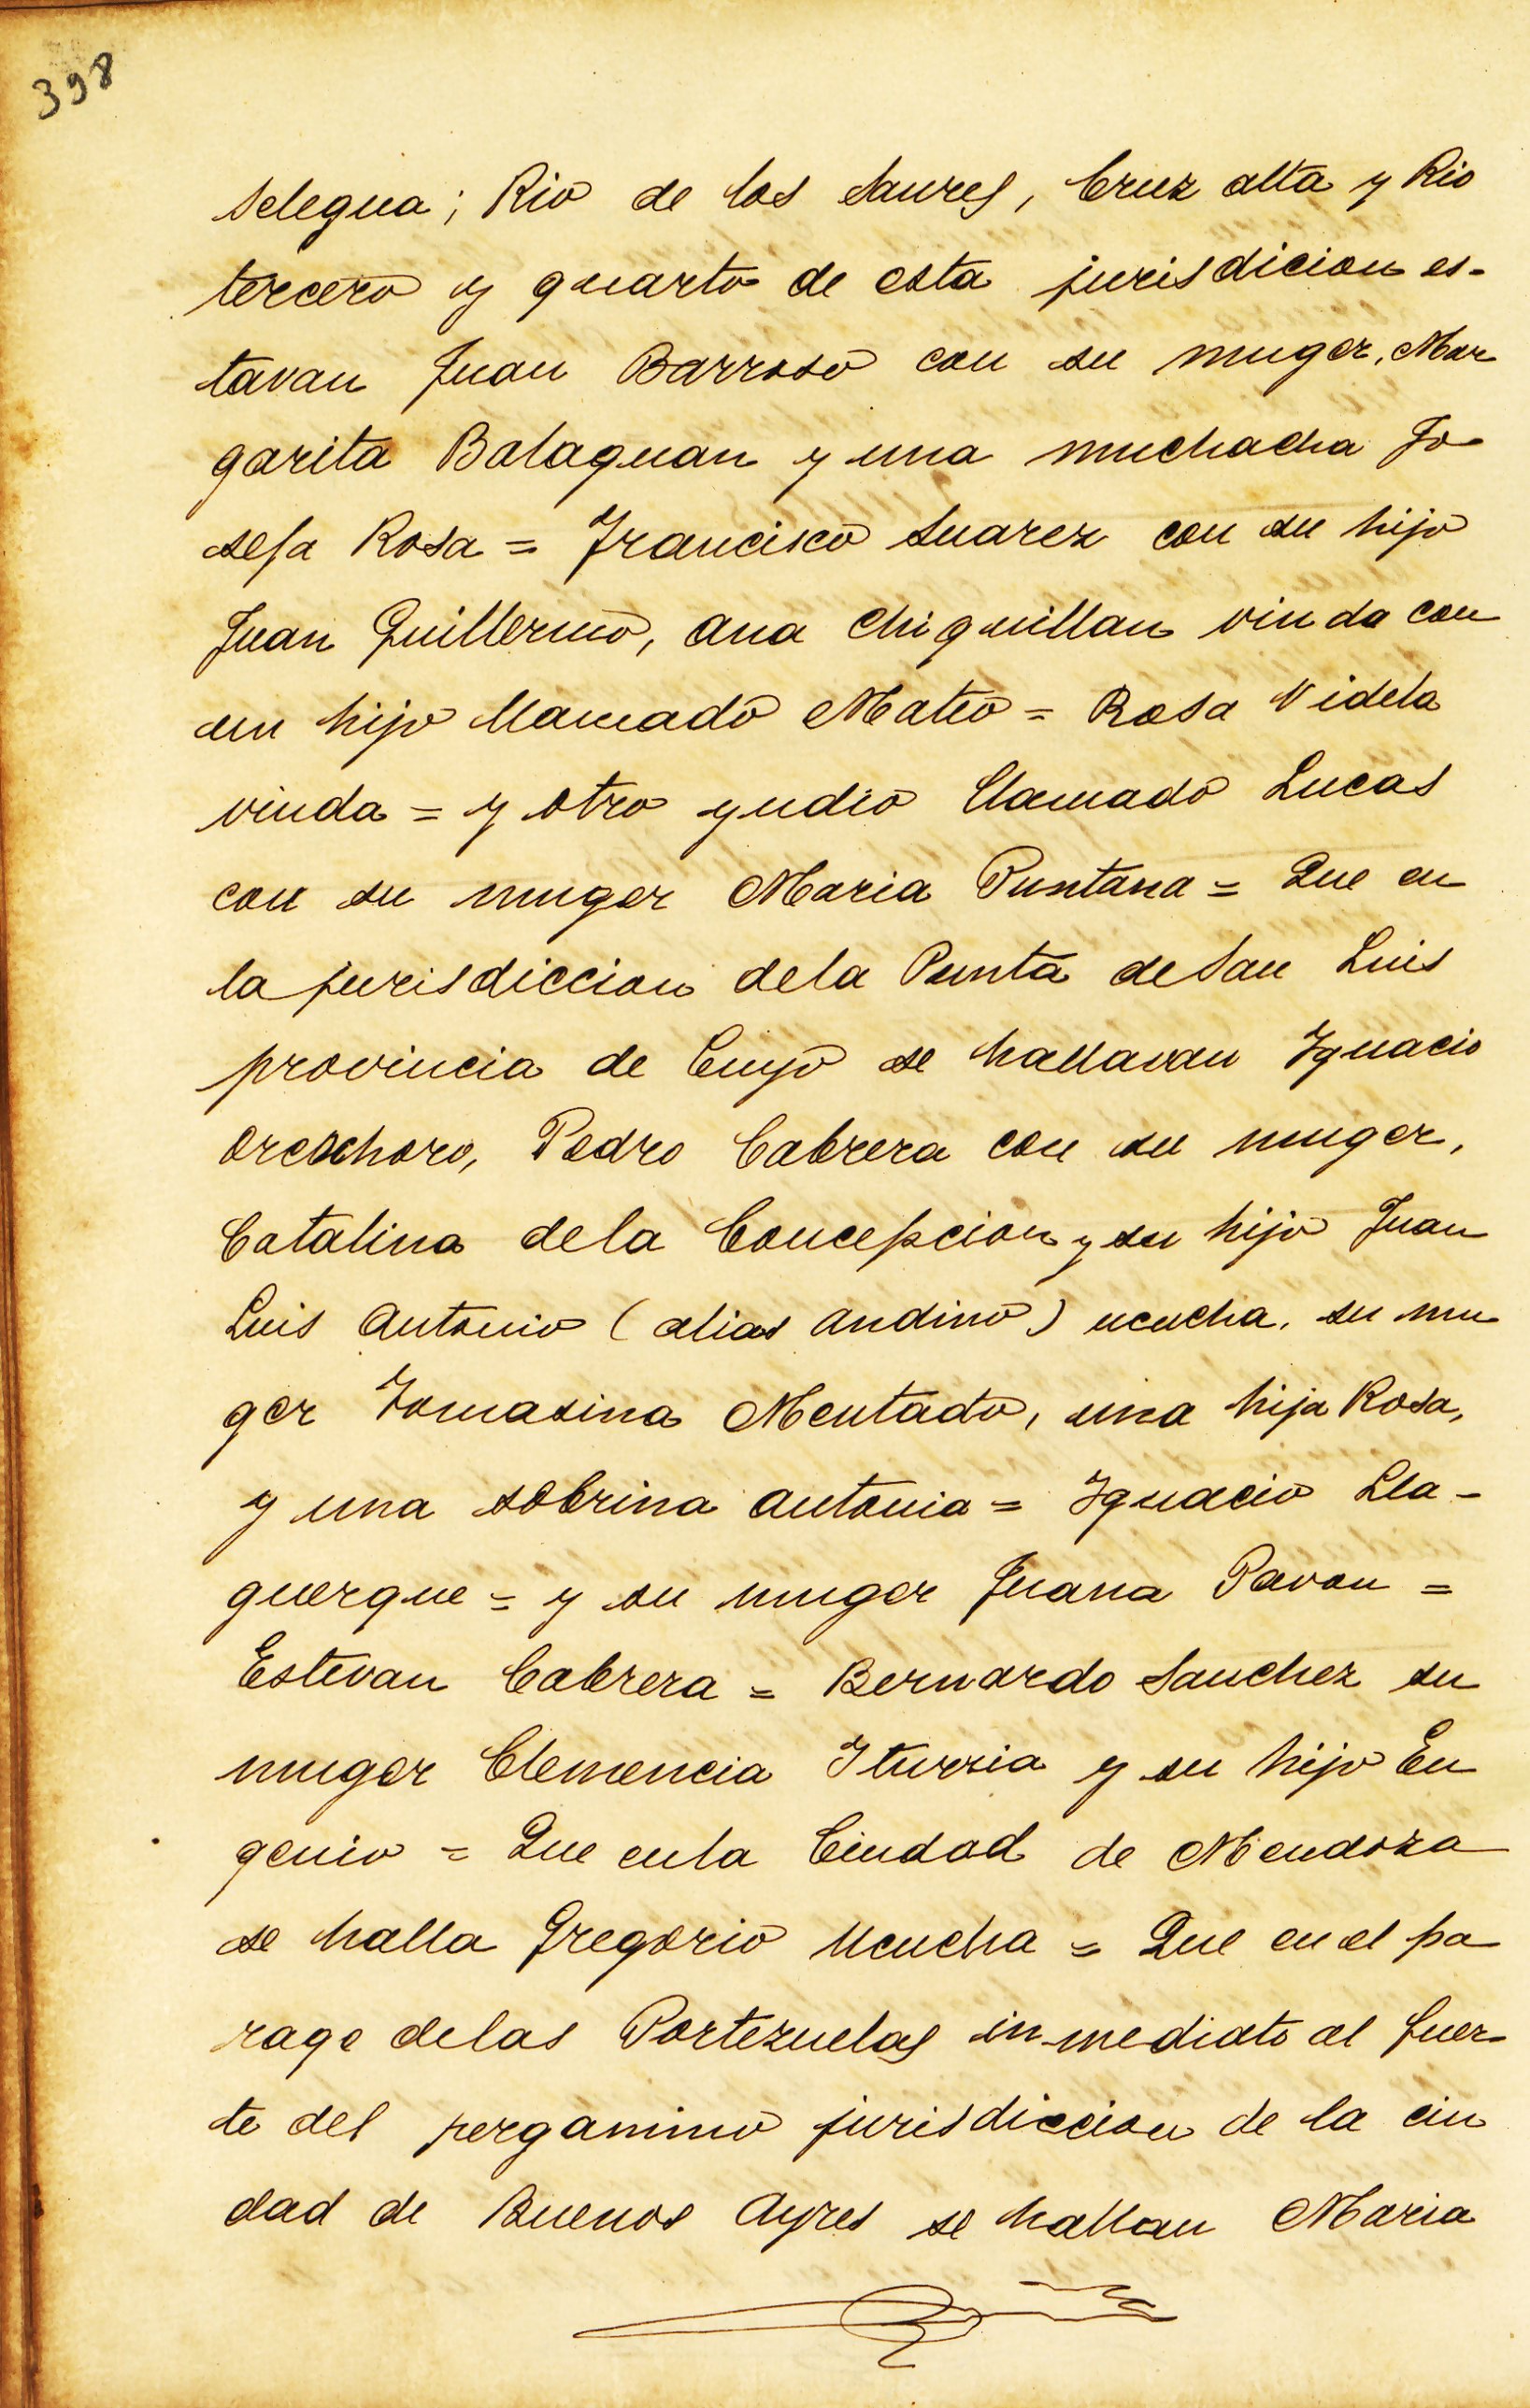 398
selegua; Rio de los saures, Cruz alta y Rio
tercero y quarto de esta jurisdicion es-
tavan Juan Barroso con su muger, Mar
garita Balaguan y una muchacha Jo
sefa Rosa = Francisco Suarez con su hijo
Juan Guillermo, Ana Chiquillan viuda con
un hijo llamado Mateo = Rosa Videla
viuda = y otro yndio llamado Lucas
con su muger Maria Puntana = Que en
la jurisdiccion dela Punta de San Luis
provincia de Cuyo se hallavan Ygnacio
Orcochoro, Pedro Cabrera con su muger,
Catalina dela Concepcion y su hijo Juan
Luis Antonio (alias Andino) ucucha, su mu
ger Tomasina Mentado, una hija Rosa,
y una sobrina Antonia = Ygnacio Lla-
querque = y su muger Juana Pavon =
Estevan Cabrera = Bernardo Sanchez su
muger Clemencia Yturria y su hijo Eu
genio = Que enla Ciudad de Mendoza
se halla Gregorio Ucucha = Que en el pa
rage delas Portezuelas inmediato al fuer-
te del pergamino jurisdiccion de la ciu
dad de Buenos Ayres se hallan Maria